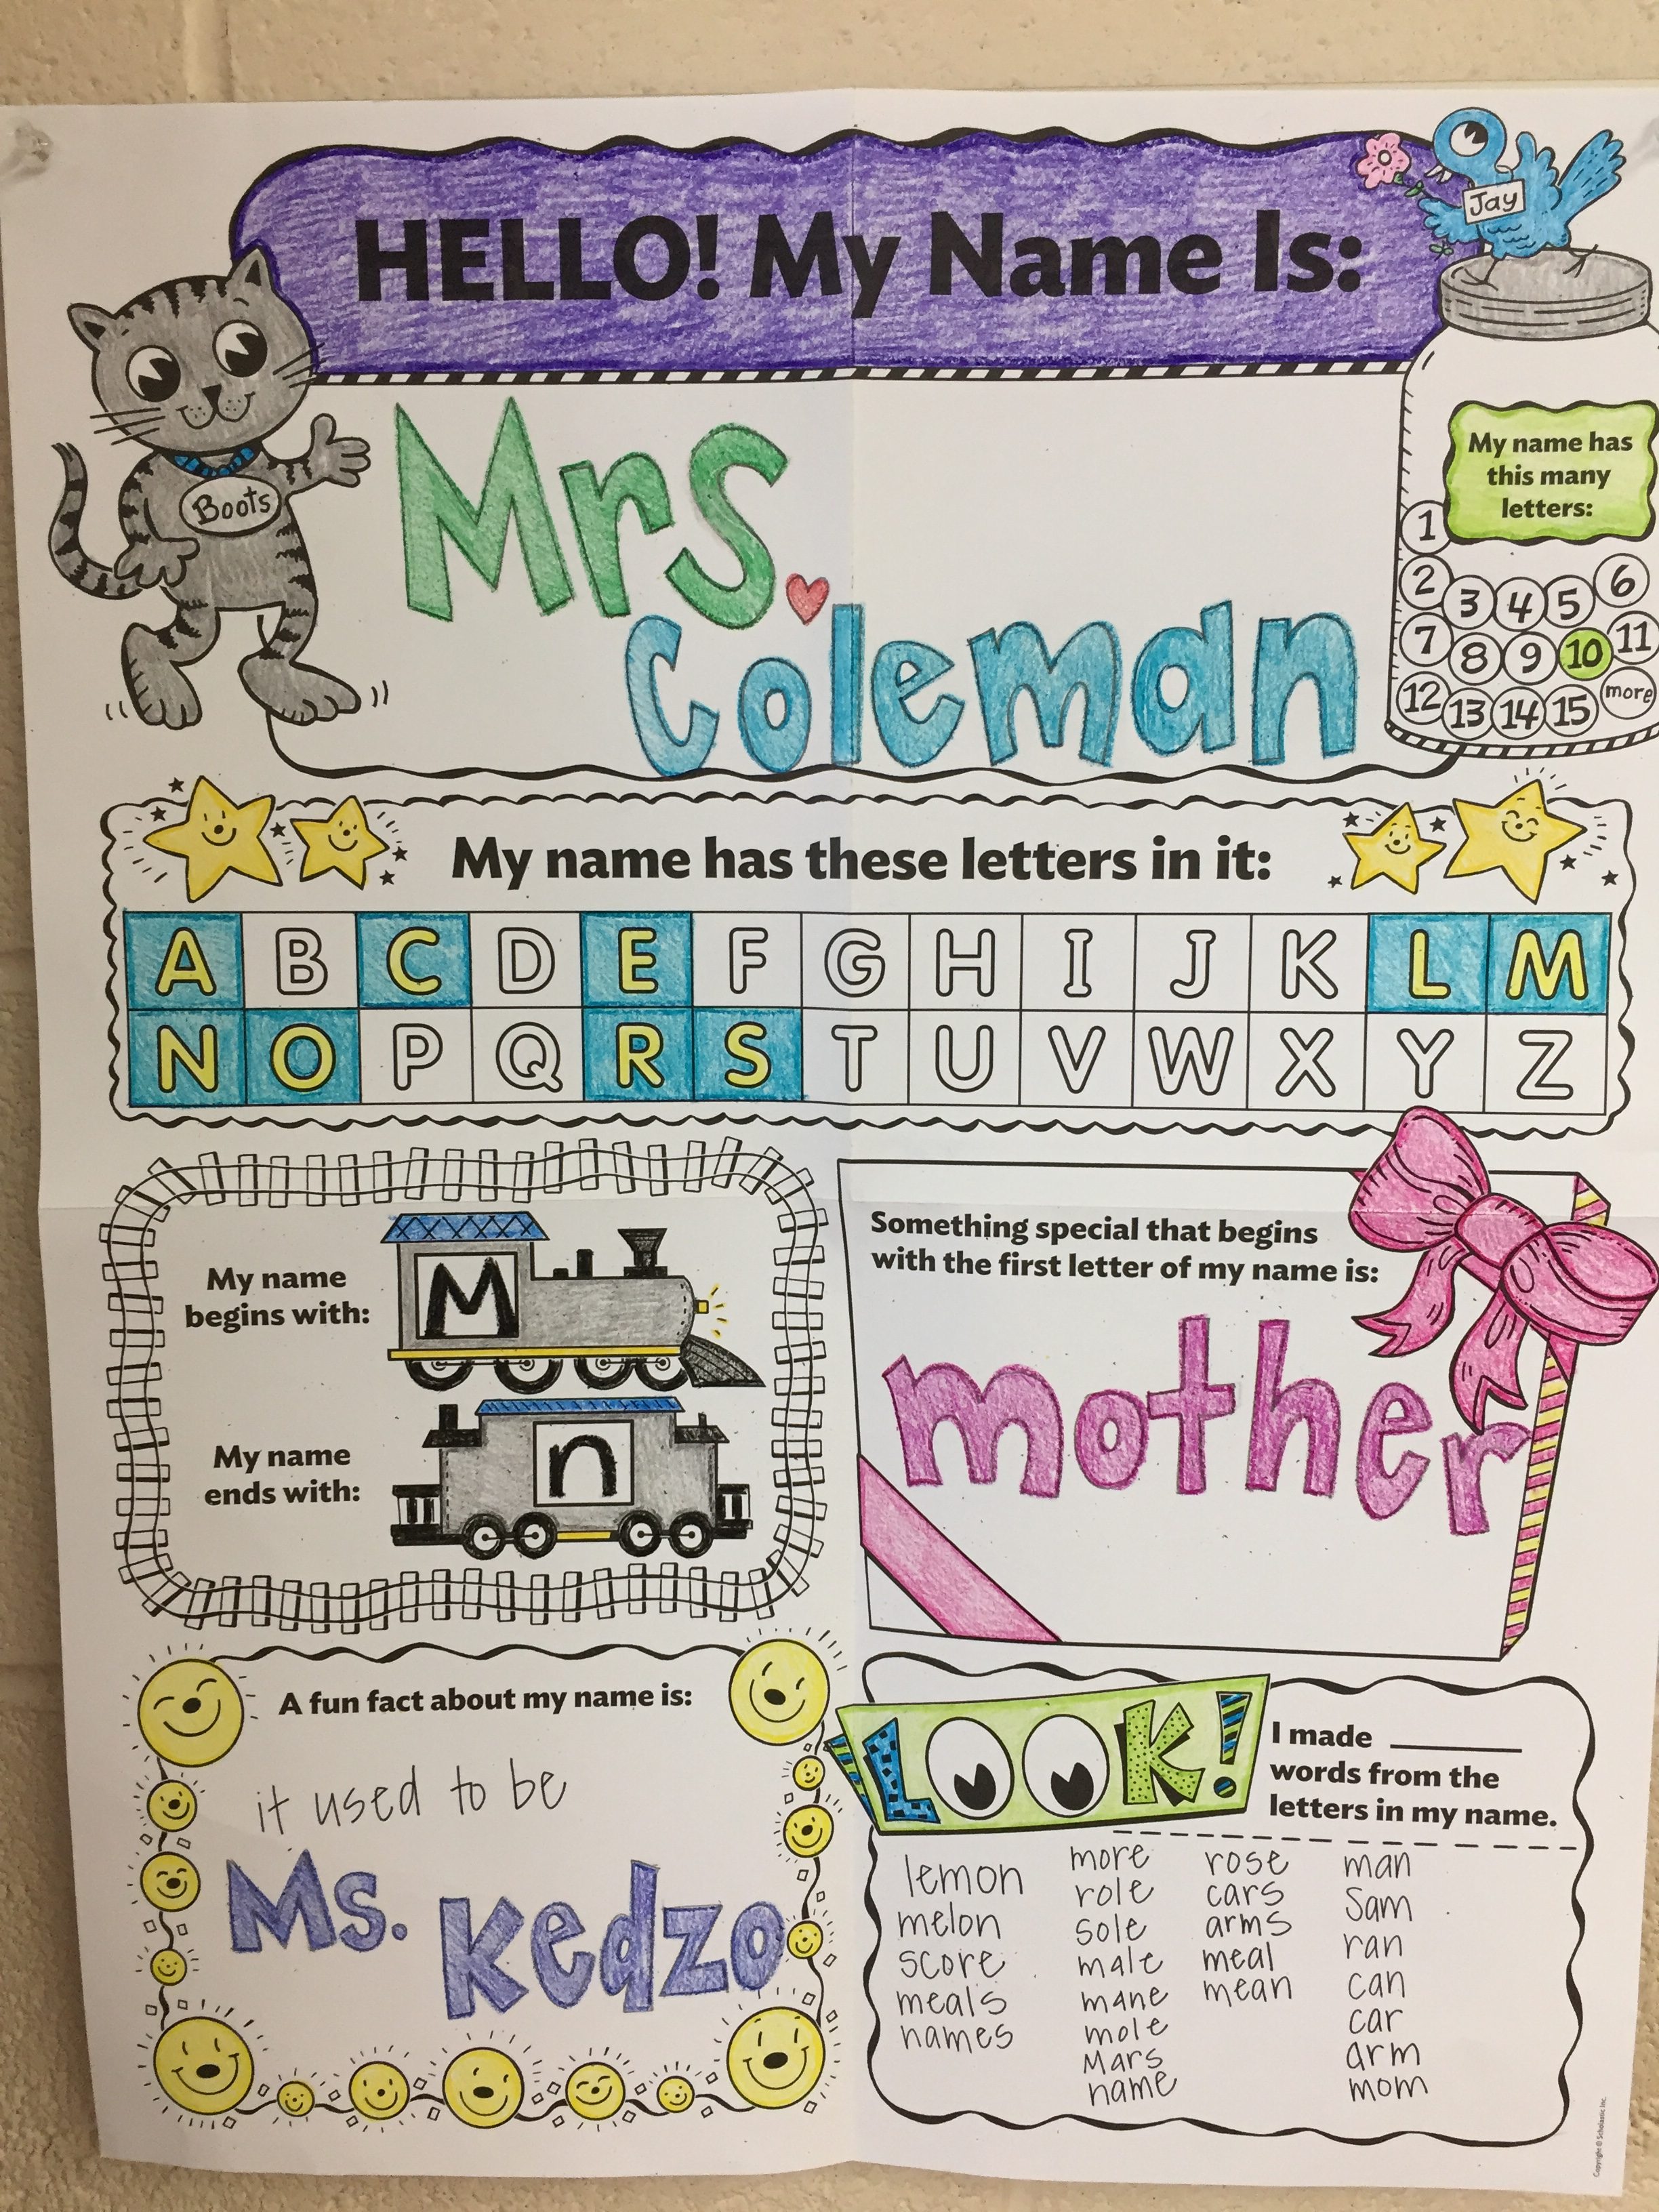 HELLO! My Name Is:
Jay
Boots
Mrs.
Coleman
My name has
this many
letters:
1
2 3 4 5 6
7 8 9 10 11
12 13 14 15 more
My name has these letters in it:
A B C D E F G H I J K L M
N O P Q R S T U V W X Y Z
My name
begins with:
M
My name
ends with:
n
Something special that begins
with the first letter of my name is:
mother
A fun fact about my name is:
it used to be
Ms. Kedzo
LOOK!
I made ________
words from the
letters in my name.
lemon
melon
score
meals
names
more
role
sole
male
mane
mole
Mars
name
rose
cars
arms
meal
mean
man
Sam
ran
can
car
arm
mom
Copyright © Scholastic Inc.